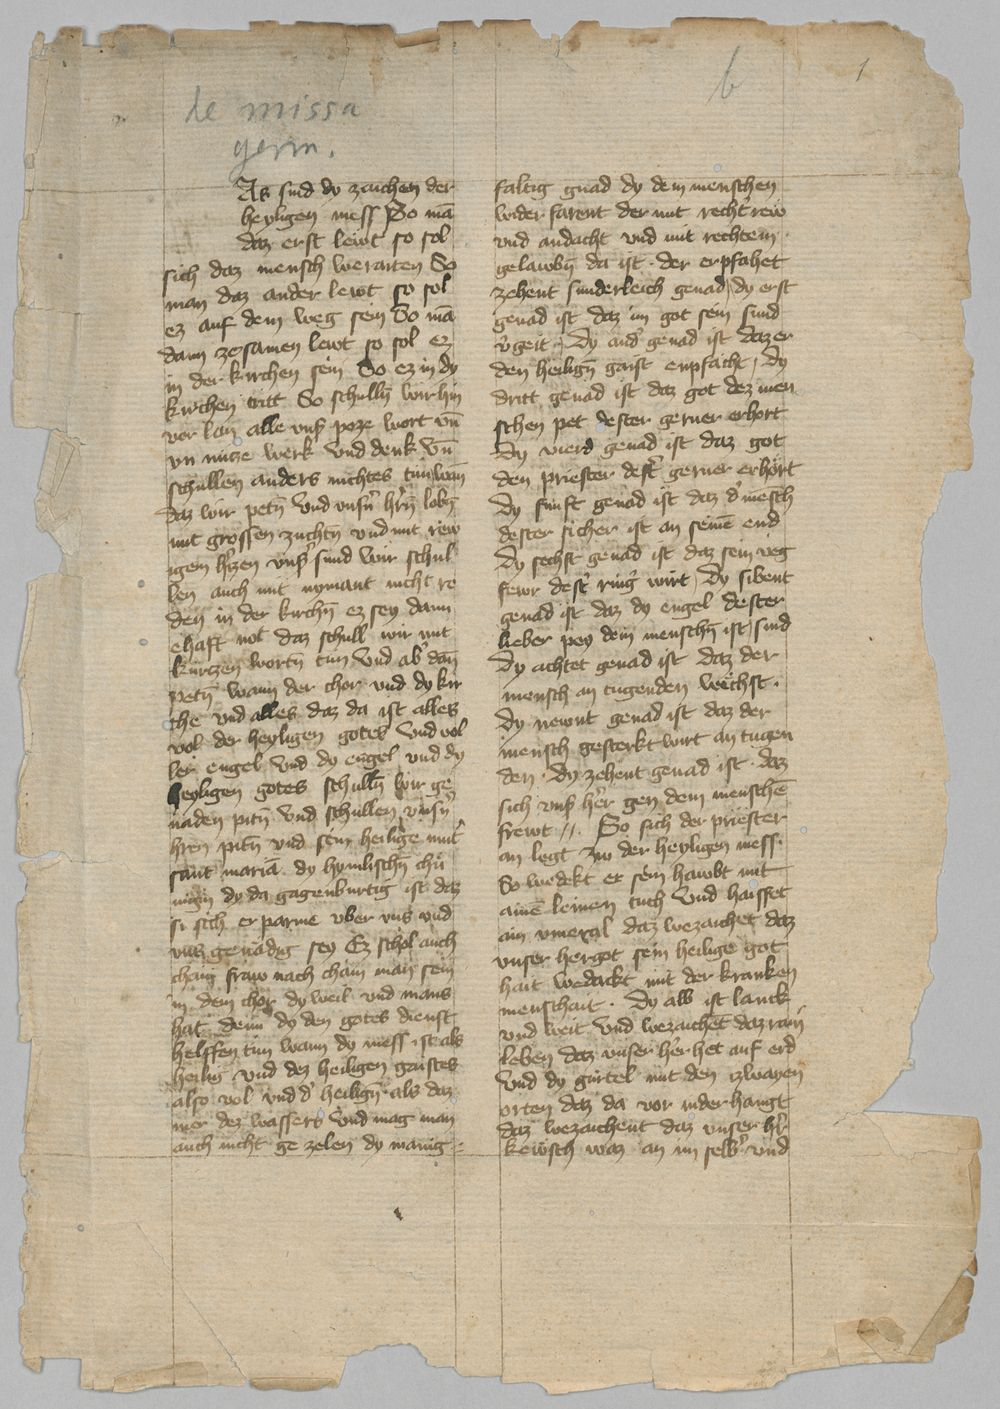 de missa
germ.
b
1
As sind dy zaichen der
heyligen mess So mā
daz erst lewt so sol
sich daz mensch weraiten So
man daz ander lewt so sol
ez auf dem weg sein So mā
dann zesamen lewt so sol ez
in der kirchen sein So ez in dy
kirchen tritt So schulln̄ wir hin
vor lan alle vnsˀ poze wort vn̄
vn nutze werk vnd denk vn̄
schullen anders nichtes tun wan̄
daz wir petn̄ vnd vnsˀn hˀrn̄ lobn̄
mit grossen zuchtn̄ vnd mit rew
igen hˀczen vnsˀ sund wir schul
len auch mit nymant nicht re
den in der kirchn̄ ez sey dann
ehaft not daz schull wir mit
kurczen wortn̄ tun vnd abˀ dan̄
petn̄ wann der chor vnd dy kir
che vnd alles daz da ist alles
vol der heyligen gotes vnd vol
ler engel vnd dy engel vnd dy
heyligen gotes schulln̄ wir ge
naden pitn̄ vnd schullen vnsˀn
hˀren pitn̄ vnd sein heilige mutˀ
sant mariā dy hymlischn̄ chu
nigin dy da gagenburtig ist daz
si sich erparme vber vns vnd
vns genadig sey Ez schol auch
chain fraw nach chain man sein
in dem chor dy weil vnd mans
hat denn dy den gotes dienst
helffen tun wann dy mess ist als
heilig vnd dez heiligen gaistes
also vol vnd dˀ heilign̄ als daz
mer dez wassers vnd mag man
auch nicht ge zelen dy manig
faltig gnad dy dem menschen
wider farent der mit rechtˀ rew
vnd andacht vnd mit rechtem
gelawbn̄ da ist · der erpfahet
zehent sunderleich genad / dy erst
genad ist daz im got sein sund
vˀgeit · Dy andˀ genad ist daz er
den heilign̄ gaist enpfacht / Dy
dritt genad ist daz got dez men
schen pet dester gerner erhort
Dy vierd genad ist daz got
den priester destˀ gerner erhort
Dy funft genad ist daz dˀ mēsch
dester sicher ist an seinē end
Dy sechst genad ist daz sein veg
fewr destˀ ringˀ wirt / Dy sibent
genad ist daz dy engel dester
lieber pey dem menschn̄ ist / sind
Dy achtet genad ist daz der
mensch an tugenden wechst ·
Dy newnt genad ist daz der
mensch gesterkt wirt an tugen
den · Dy zehent genad ist · daz
sich vnsˀ hˀer gen dem menschē
frewt // · So sich der priester
an legt zw der heyligen mess ·
So wedekt er sein hawbt mit
ainē leinen tuch vnd haisset
ain vmeral daz wezaichet daz
vnser hergot sein heilige got
hait wedackt mit der kranken
menschait · Dy alb ist lanck
vnd weit vnd wezaichēt daz rain
leben daz vnser hˀer het auf erd
vnd dy gurtel mit den zwayen
orten daz da vor nider hangt
daz wezaichent daz vnser hˀr
kewsch waz an im selbˀ vnd